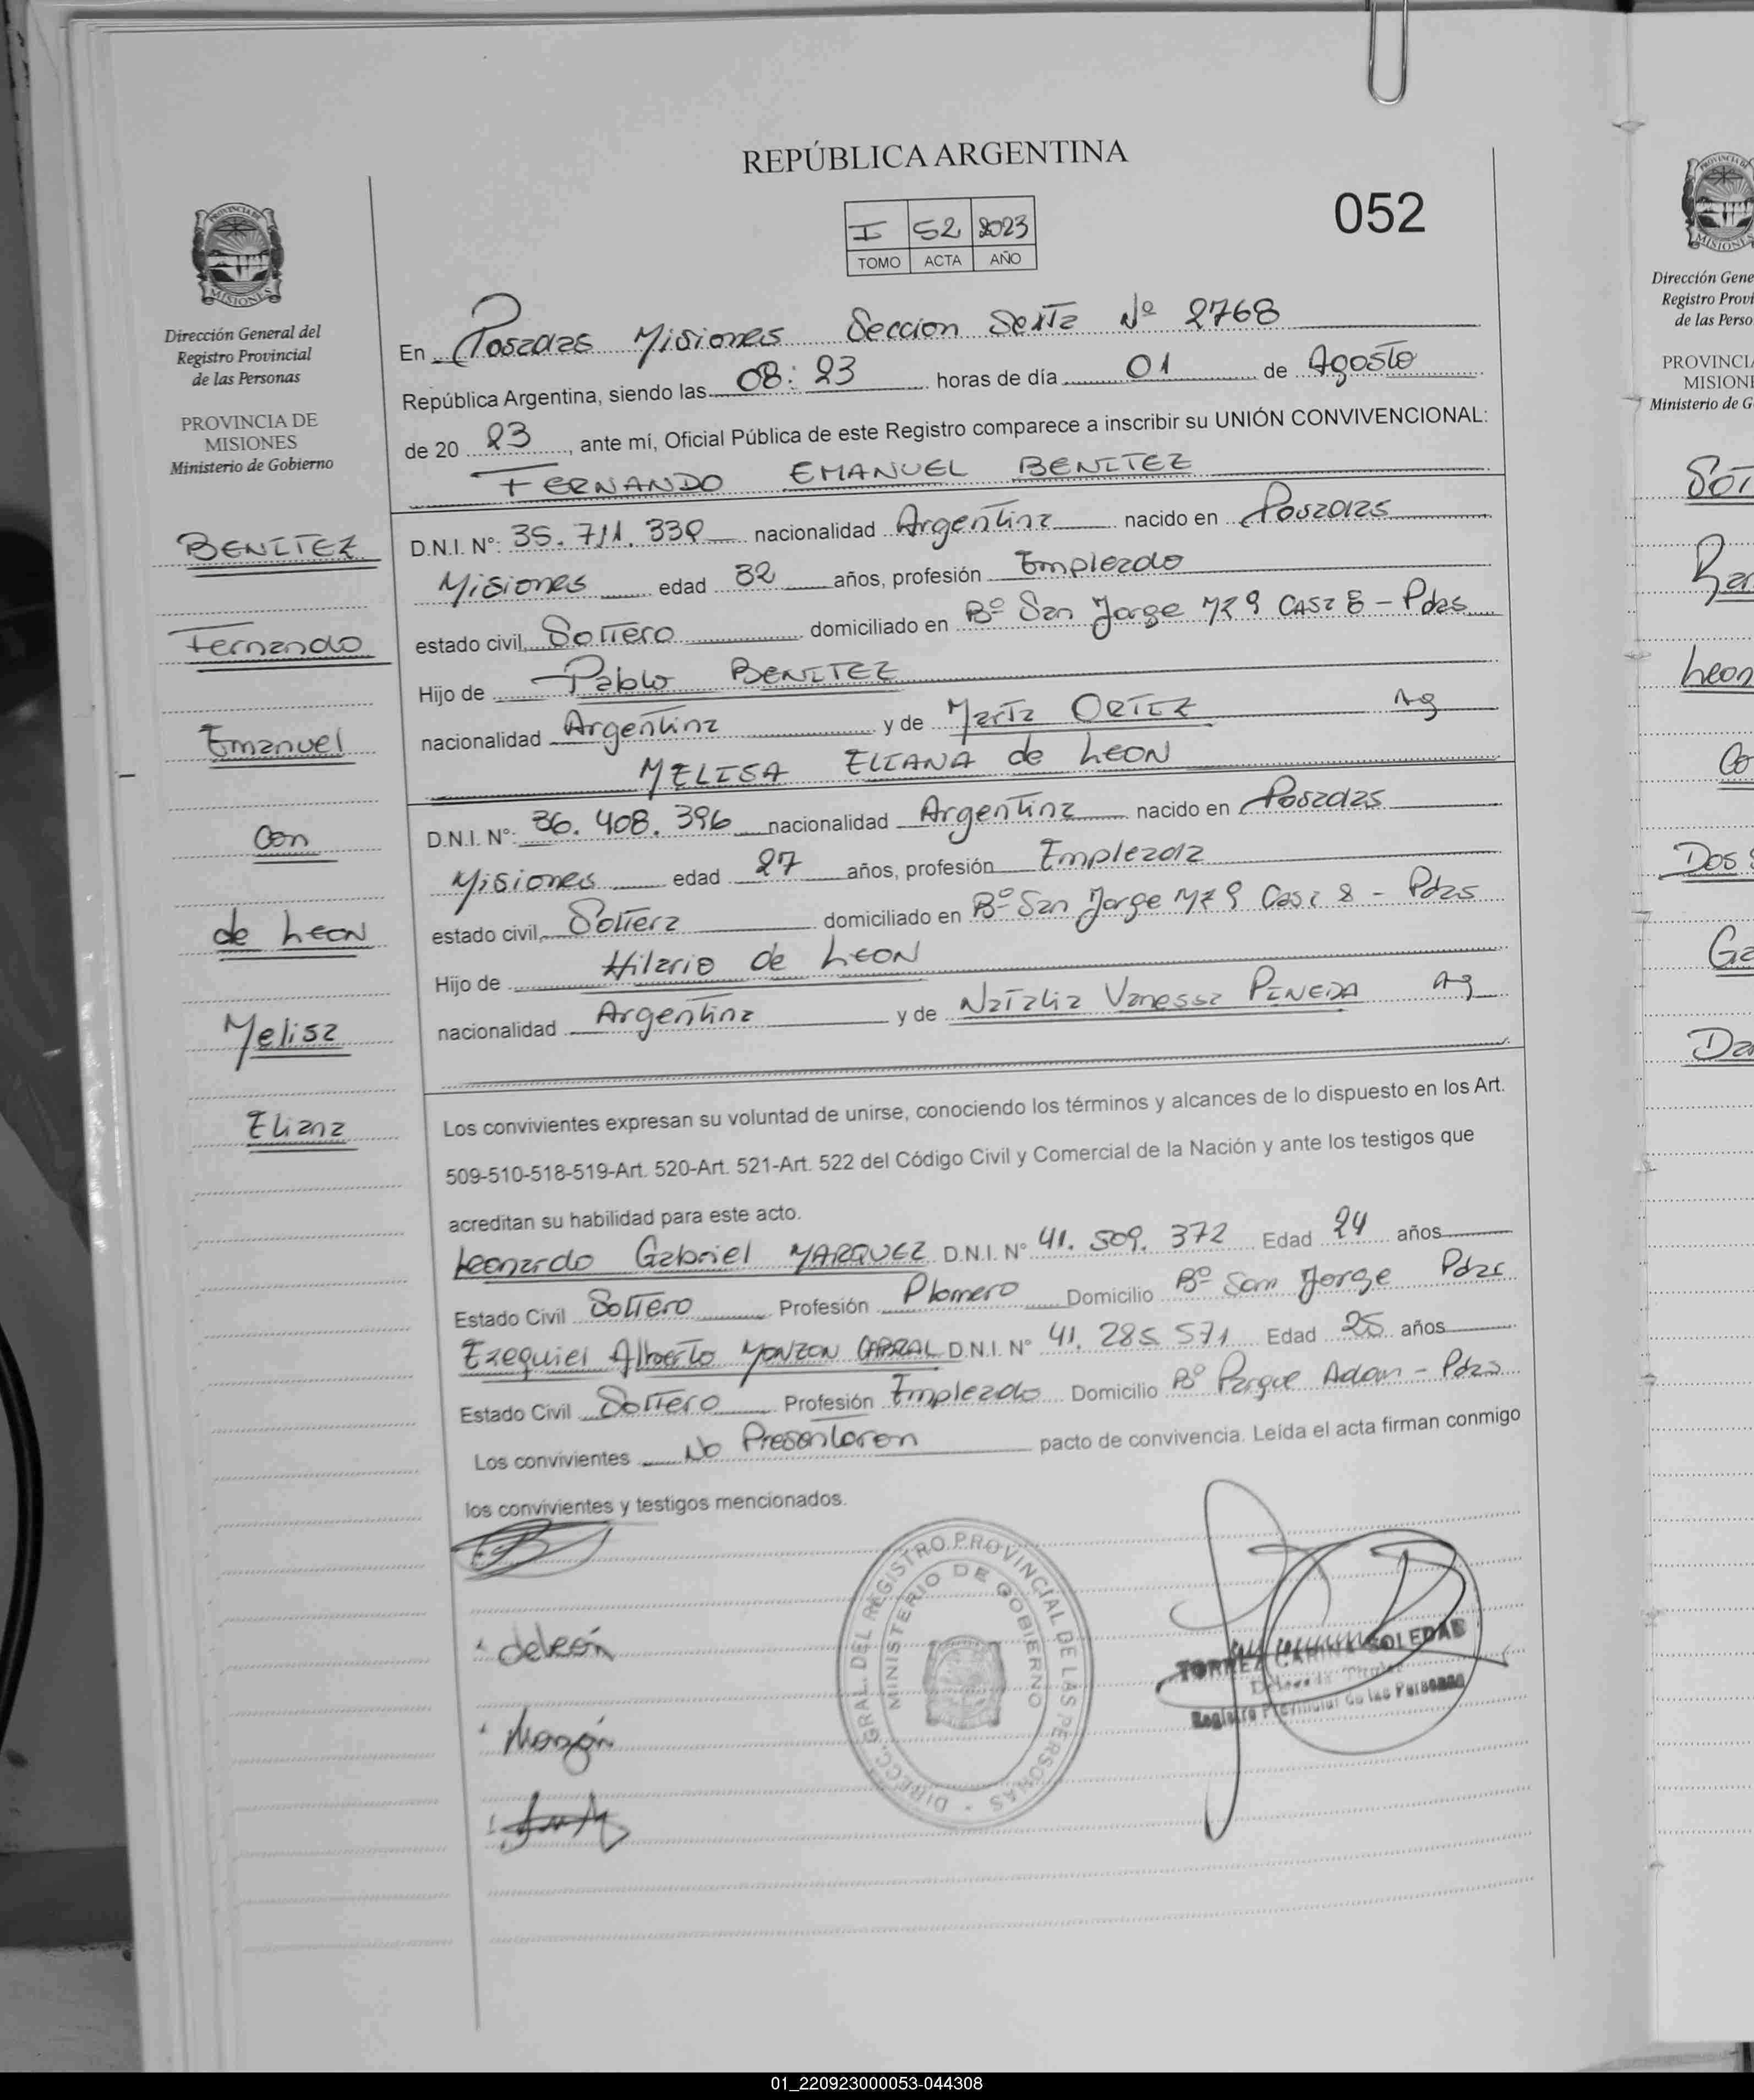 REPÚBLICA ARGENTINA
052
I 52 2023
TOMO ACTA AÑO
PROVINCIA DE
MISIONES
Dirección General del
Registro Provincial
de las Personas
PROVINCIA DE
MISIONES
Ministerio de Gobierno
BENITEZ
Fernando
Emanuel
con
de LEON
Melisa
Eliana
En Posadas Misiones Seccion Sexta Nº 2768
República Argentina, siendo las 08:23 horas de día 01 de Agosto
de 20 23, ante mí, Oficial Pública de este Registro comparece a inscribir su UNIÓN CONVIVENCIONAL:
FERNANDO EMANUEL BENITEZ
D.N.I. N°: 35.711.330 nacionalidad Argentina nacido en Posadas
Misiones edad 32 años, profesión Empleado
estado civil, Soltero domiciliado en Bº San Jorge Mz 9 Casa 8 - Pdas
Hijo de Pablo BENITEZ
nacionalidad Argentina y de Marta ORTIZ Ag
MELISA ELIANA de LEON
D.N.I. N°: 36.408.396 nacionalidad Argentina nacido en Posadas
Misiones edad 27 años, profesión Empleada
estado civil, Soltera domiciliado en Bº San Jorge Mz 9 Casa 8 - Pdas
Hijo de Hilario de LEON
nacionalidad Argentina y de Natalia Vanessa PINEDA Ag
Los convivientes expresan su voluntad de unirse, conociendo los términos y alcances de lo dispuesto en los Art.
509-510-518-519-Art. 520-Art. 521-Art. 522 del Código Civil y Comercial de la Nación y ante los testigos que
acreditan su habilidad para este acto.
Leonardo Gabriel MARQUEZ D.N.I. N° 41.509.372 Edad 24 años
Estado Civil Soltero Profesión Plomero Domicilio Bº San Jorge Pdas
Ezequiel Alberto MONZON CABRAL D.N.I. N° 41.285 571 Edad 25 años
Estado Civil Soltero Profesión Empleado Domicilio Bº Parque Adam - Pdas
Los convivientes No Presentaron pacto de convivencia. Leída el acta firman conmigo
los convivientes y testigos mencionados.
deleón
Monzón
DIRECC. GRAL. DEL REGISTRO PROVINCIAL DE LAS PERSONAS
MINISTERIO DE GOBIERNO
TORREZ CARINA SOLEDAD
Delegada Titular
Registro Provincial de las Personas
Dirección Gene
Registro Provi
de las Perso
PROVINCI
MISION
Ministerio de G
Leon
Co
Dos
Ga
Da
01_220923000053-044308